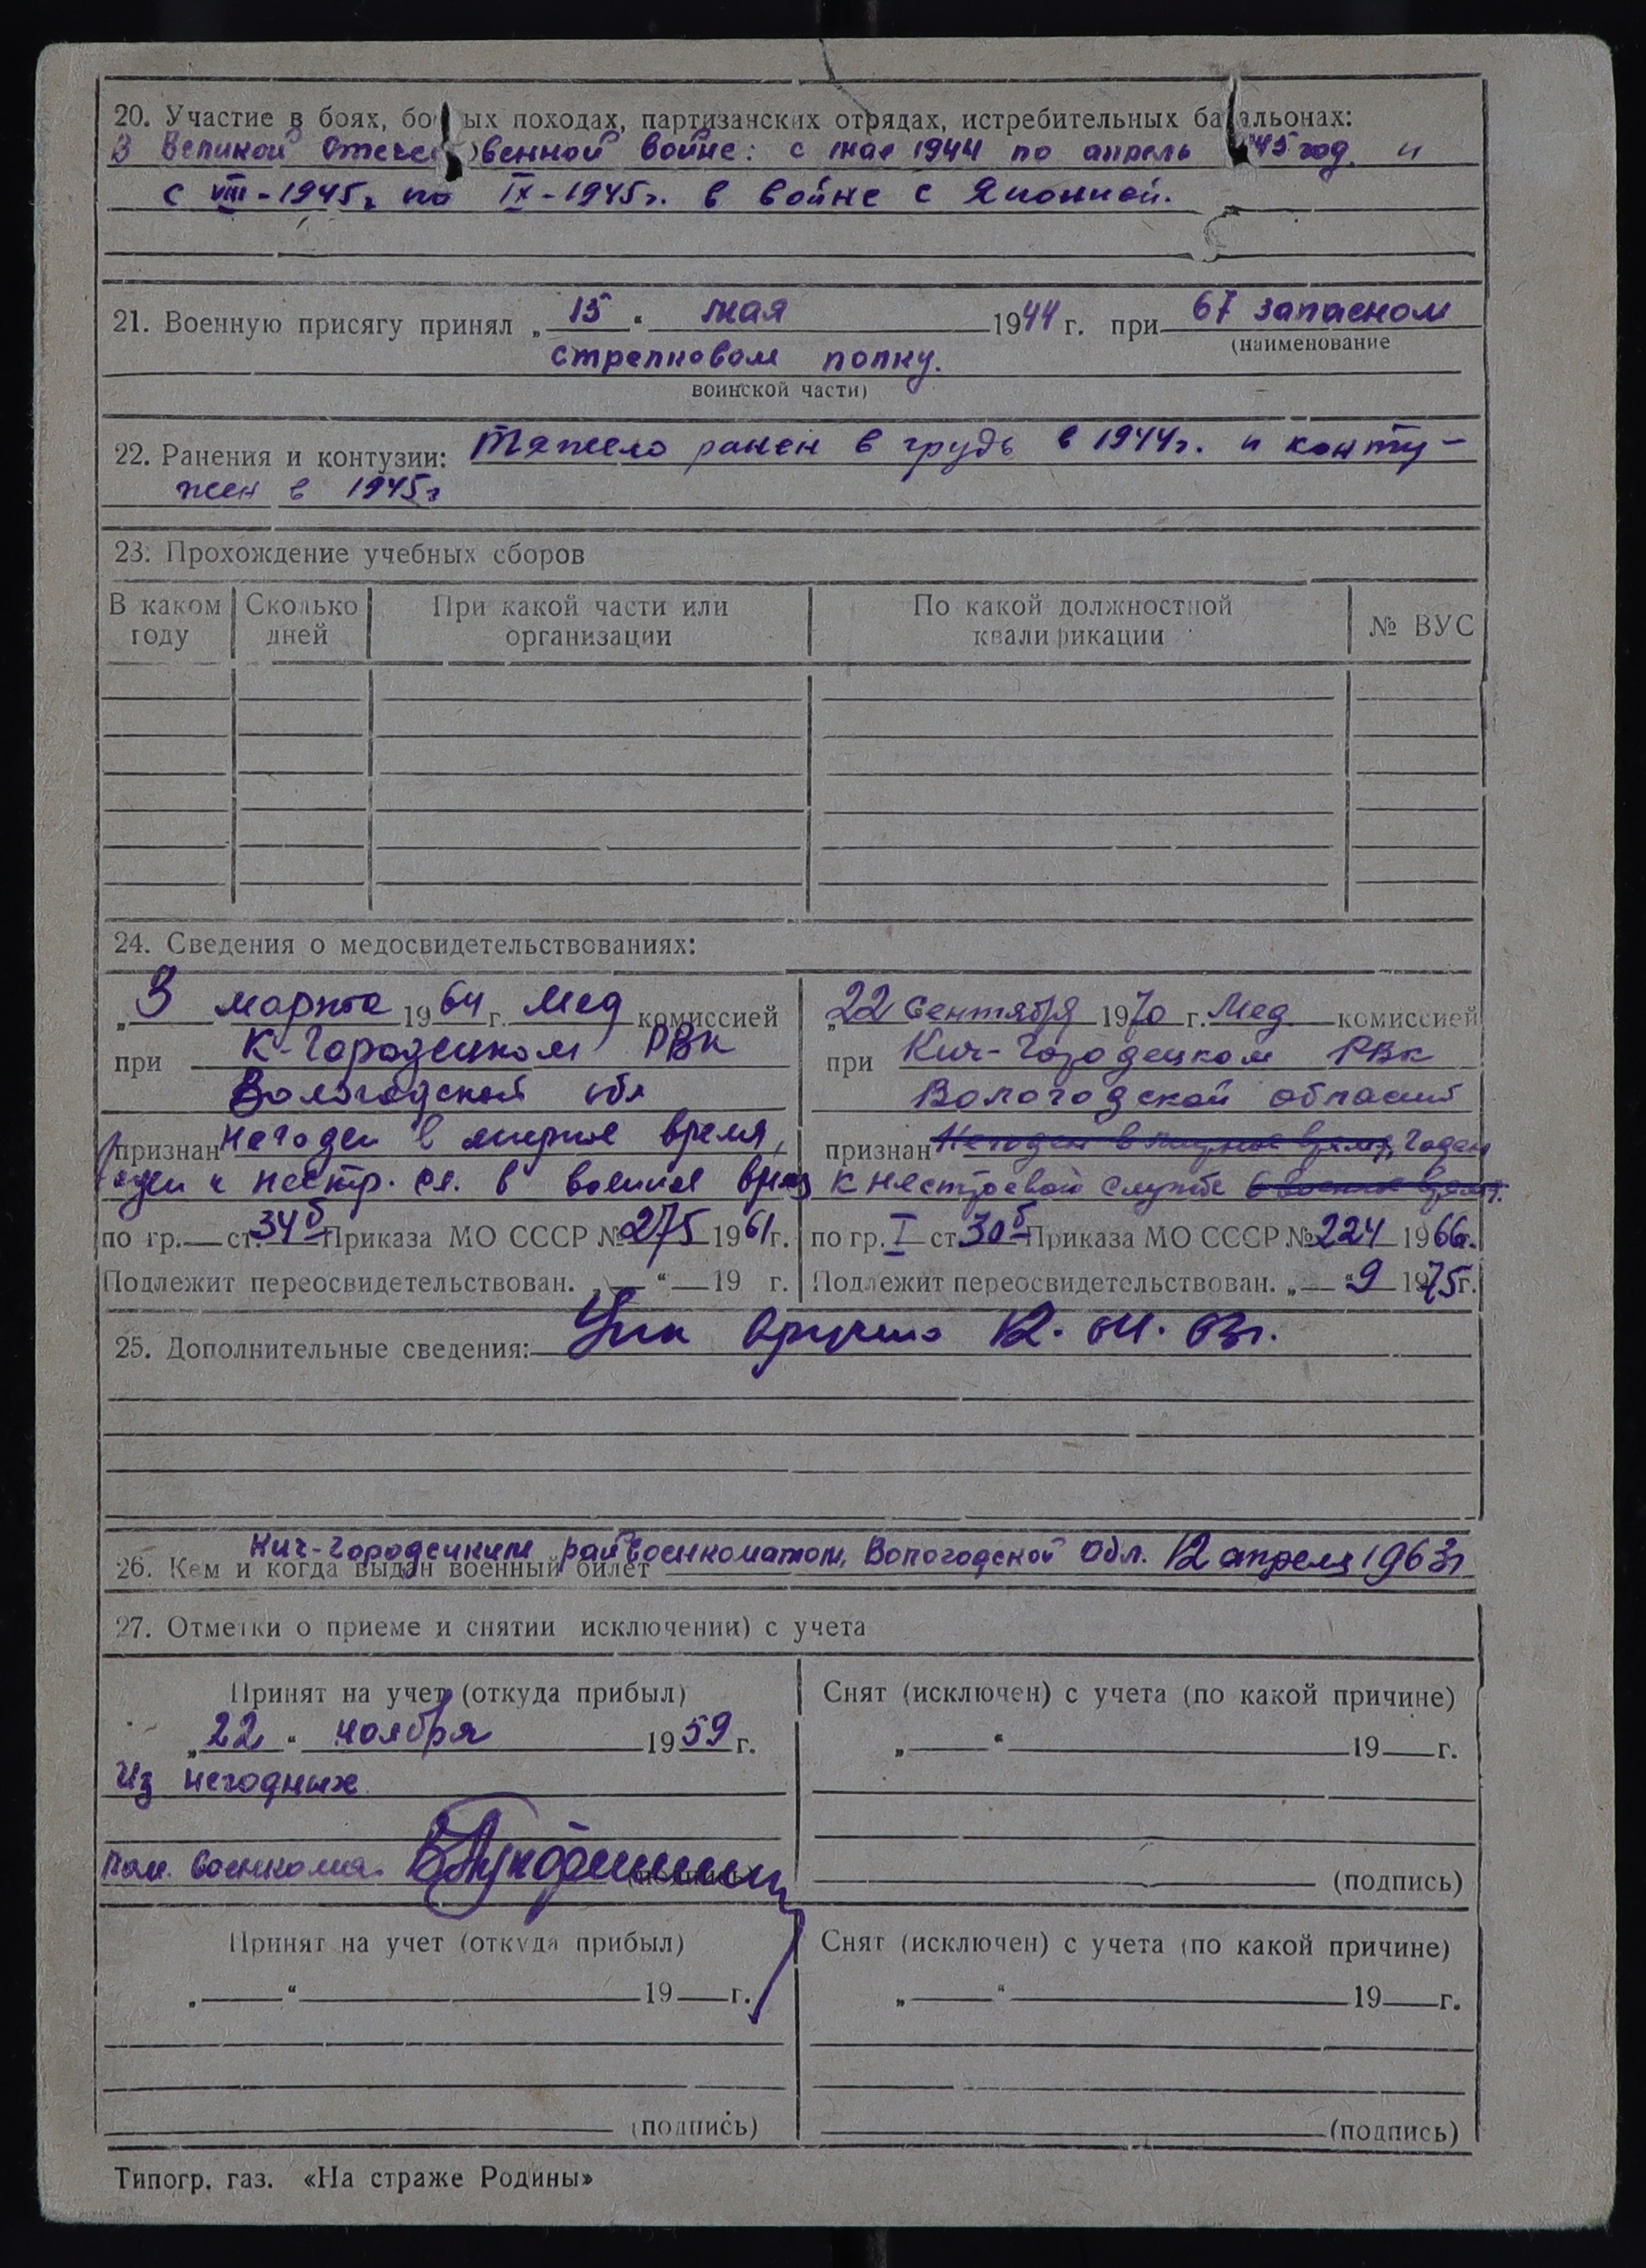 20. Участие в боях, бо ых походах, партизанских отрядах, истребительных ба альонах:
В Великой Отечес венной войне: с мая 1944 по апрель 45 год. и
с VIII-1945г. по IX-1945г. в войне с Японией.
21. Военную присягу принял „15“ мая 1944 г. при 67 запасном
(наименование
стрелковом полку.
воинской части)
22. Ранения и контузии: Тяжело ранен в грудь в 1944г. и конту-
жен в 1945г
23. Прохождение учебных сборов
В каком году Сколько дней При какой части или организации По какой должностной квалификации № ВУС
24. Сведения о медосвидетельствованиях:
„3 марта 1964 г. Мед комиссией
при К-Городецком РВК
Вологодской обл
признан негоден в мирное время,
годен к нестр. сл. в военное время
по гр.— ст. 34б Приказа МО СССР № 275 1961г.
Подлежит переосвидетельствован. „—“—19 г.
„22 сентября 1970 г. Мед комиссией
при Кич-Городецком РВК
Вологодской области
признан Негоден в мирное время, Годен
к нестроевой службе в военное время.
по гр. I ст 30б Приказа МО СССР № 224 1966г.
Подлежит переосвидетельствован. „—“ 9 1975г.
25. Дополнительные сведения: 12. 04. 63г.
26. Кем и когда выдан военный билет Кич-Городецким райвоенкоматом, Вологодской обл. 12 апреля 1963г
27. Отметки о приеме и снятии исключении) с учета
Принят на учет (откуда прибыл)
„22“ ноября 1959 г.
Из негодных
пом. военкома
(подпись)
Снят (исключен) с учета (по какой причине)
„—“—19—г.
(подпись)
Принят на учет (откуда прибыл)
„—“—19—г.
(подпись)
Снят (исключен) с учета (по какой причине)
„—“—19—г.
(подпись)
Типогр. газ. «На страже Родины»